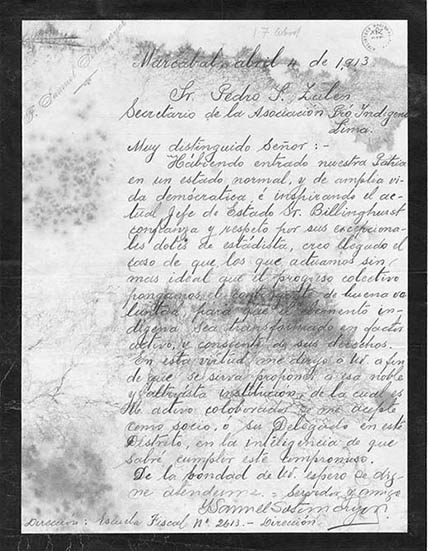 Marcabal, abril 4 de 1913
Sr. Pedro S. Zulen
Secretario de la Asociación Pró Indígena
Lima.
Muy distinguido Señor: -
Habiendo entrado nuestra Patria
en un estado normal, y de amplia vi-
da democrática, é inspirando el ac-
tual Jefe de Estado Sr. Billinghurst
confianza y respeto por sus excepciona-
les dotes de estadista, creo llegado el
caso de que los que actuamos sin
mas ideal que el progreso colectivo
pongamos el contingente de buena vo-
luntad, para que el elemento in-
dígena sea transformado en factor
activo, y consciente de sus derechos.
En esta virtud, me dirijo a Ud. a fin
de que se sirva proponer a esa noble
y altruista institución, de la cual es
Ud. activo colaborador, me acepte
como socio, o su Delegado en este
Distrito, en la inteligencia de que
sabré cumplir este compromiso.
De la bondad de Ud. espero se dig-
ne atenderme. = Servidor y amigo
Samuel Sotomayor
Dirección: Escuela Fiscal Nº 2613. - Dirección.